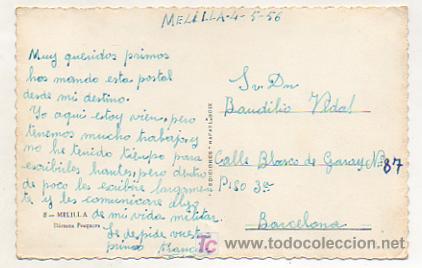 MELILLA-4-5-56
Muy queridos primos
hos mando esta postal
desde mi destino.
Yo aqui estoy vien, pero
tenemos mucho trabajo, y
no he tenido tienpo para
escribirles hantes, pero dentro
de poco les escribire largamen
te y les comunicare algo
de mi vida militar.
Se de pide vuestro
primo
8 - MELILLA
Dársena Pesquera
EDICIONES
Sr. Dn
Baudilio Vidal
Calle Blasco de Garay, Nº 87
Piso 3º
Barcelona
todocoleccion
www.todocoleccion.net